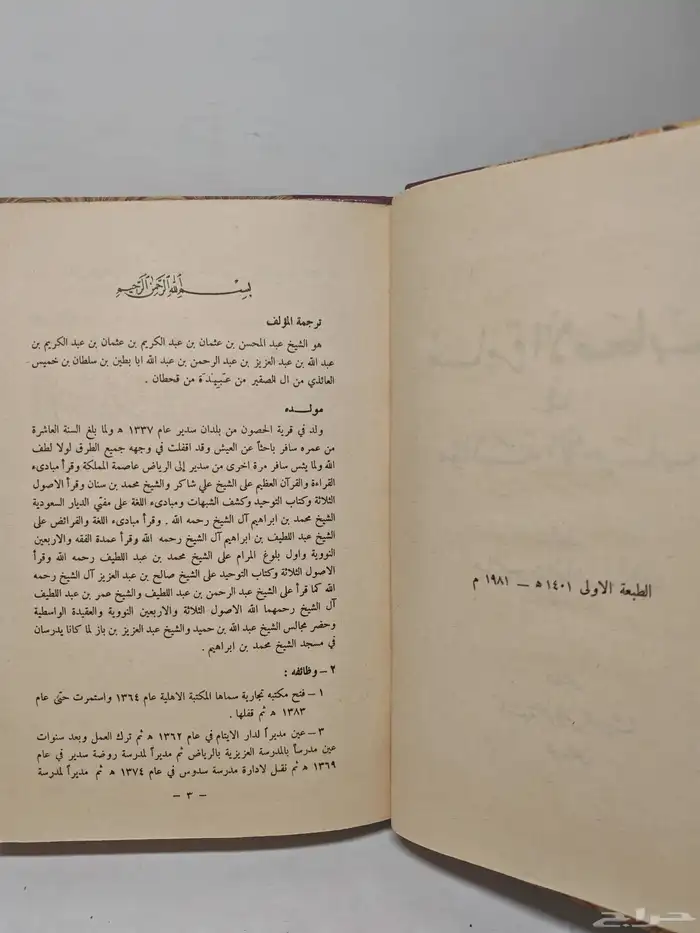 الطبعة الاولى ١٤٠١ ه‍ – ١٩٨١ م
بسم الله الرحمن الرحيم
ترجمة المؤلف
هو الشيخ عبد المحسن بن عثمان بن عبد الكريم بن عثمان بن عبد الكريم بن
عبد الله بن عبد العزيز بن عبد الرحمن بن عبد الله ابا بطين بن سلطان بن خميس
العائذي من ال الصقير من عبيدة من قحطان .
مولده
ولد في قرية الحصون من بلدان سدير عام ١٣٣٧ ه‍ ولما بلغ السنة العاشرة
من عمره سافر باحثاً عن العيش وقد اقفلت في وجهه جميع الطرق لولا لطف
الله ولما يئس سافر مرة اخرى من سدير إلى الرياض عاصمة المملكة وقرأ مبادىء
القراءة والقرآن العظيم على الشيخ علي شاكر والشيخ محمد بن سنان وقرأ الاصول
الثلاثة وكتاب التوحيد وكشف الشبهات ومبادىء اللغة على مفتي الديار السعودية
الشيخ محمد بن ابراهيم آل الشيخ رحمه الله . وقرأ مبادىء اللغة والفرائض على
الشيخ عبد اللطيف بن ابراهيم آل الشيخ رحمه الله وقرأ عمدة الفقه والاربعين
النووية واول بلوغ المرام على الشيخ محمد بن عبد اللطيف رحمه الله وقرأ
الاصول الثلاثة وكتاب التوحيد على الشيخ صالح بن عبد العزيز آل الشيخ رحمه
الله كما قرأ على الشيخ عبد الرحمن بن عبد اللطيف والشيخ عمر بن عبد اللطيف
آل الشيخ رحمهما الله الاصول الثلاثة والاربعين النووية والعقيدة الواسطية
وحضر مجالس الشيخ عبد الله بن حميد والشيخ عبد العزيز بن باز لما كانا يدرسان
في مسجد الشيخ محمد بن ابراهيم .
٢ – وظائفه :
١ – فتح مكتبه تجارية سماها المكتبة الاهلية عام ١٣٦٤ واستمرت حتى عام
١٣٨٣ ه‍ ثم قفلها .
٣ – عين مديراً لدار الايتام في عام ١٣٦٢ ه‍ ثم ترك العمل وبعد سنوات
عين مدرساً بالمدرسة العزيزية بالرياض ثم مديراً لمدرسة روضة سدير في عام
١٣٦٩ ه‍ ثم نقل لادارة مدرسة سدوس في عام ١٣٧٤ ه‍ ثم مديراً لمدرسة
– ٣ –
حراج